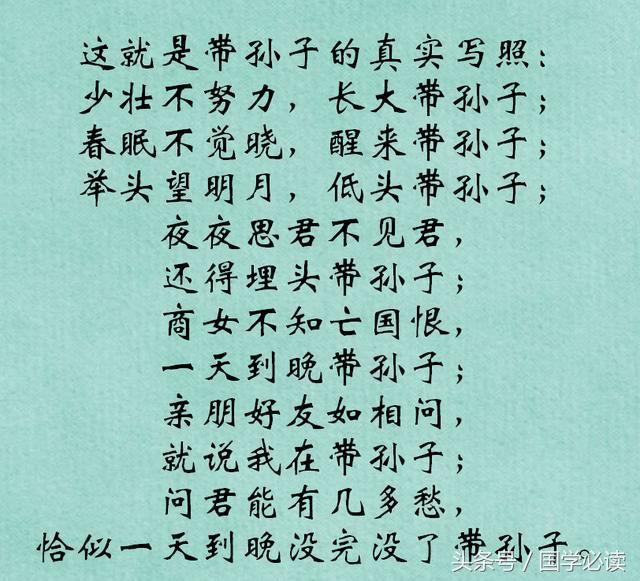 这就是带孙子的真实写照：
少壮不努力，长大带孙子；
春眠不觉晓，醒来带孙子；
举头望明月，低头带孙子；
夜夜思君不见君，
还得埋头带孙子；
商女不知亡国恨，
一天到晚带孙子；
亲朋好友如相问，
就说我在带孙子；
问君能有几多愁，
恰似一天到晚没完没了带孙子。
头条号／国学必读